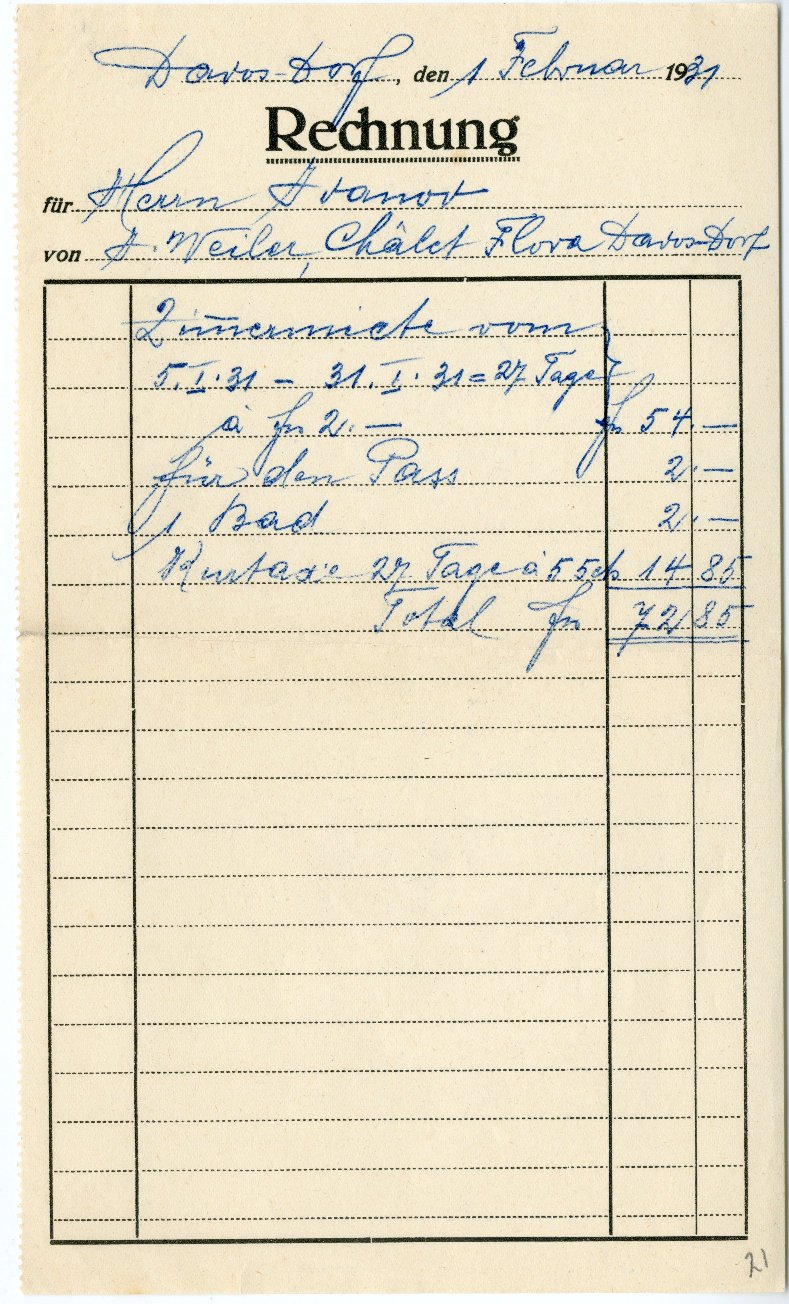 Davos-Dorf, den 1 Februar 1931
Rechnung
für Herrn Ivanov
von A. Weiler, Châlet Flora Davos-Dorf
Zim̅ermiete vom
5. I. 31 – 31. I. 31 = 27 Tage
à frs 2.— frs 54.—
für den Pass 2.—
1 Bad 2.—
Kurtaxe 27 Tage à 55 cts 14 85
Total frs 72 85
21